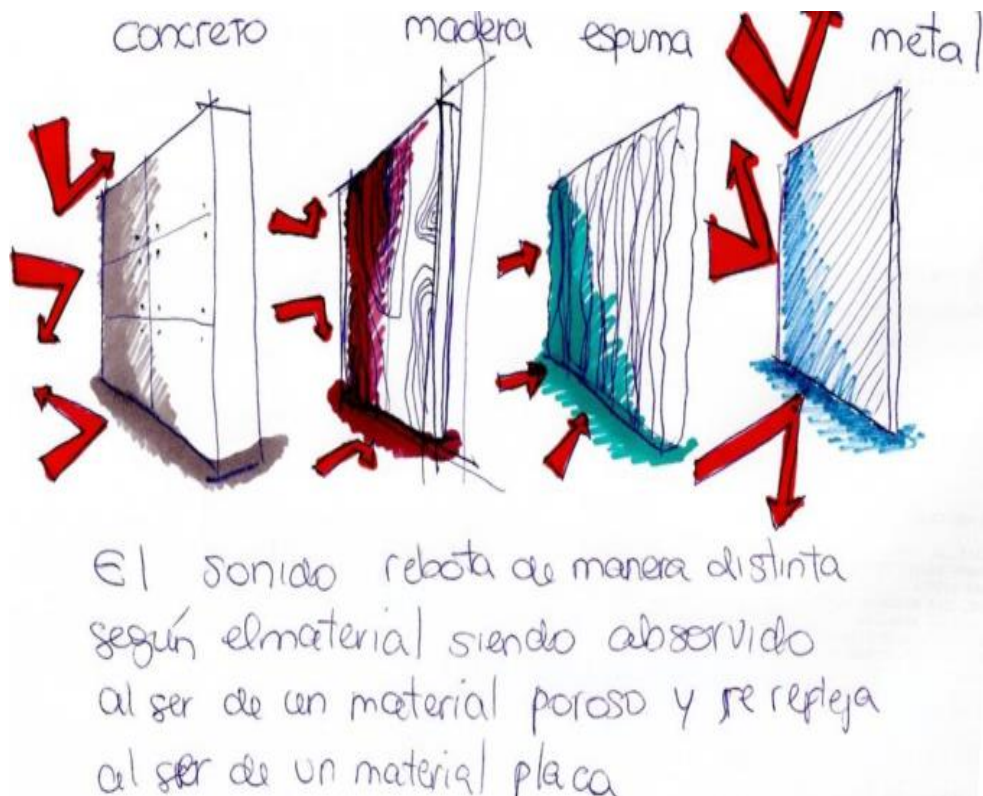 concreto madera espuma metal
El sonido rebota de manera distinta
según el material siendo absorvido
al ser de un material poroso y se refleja
al ser de un material placa